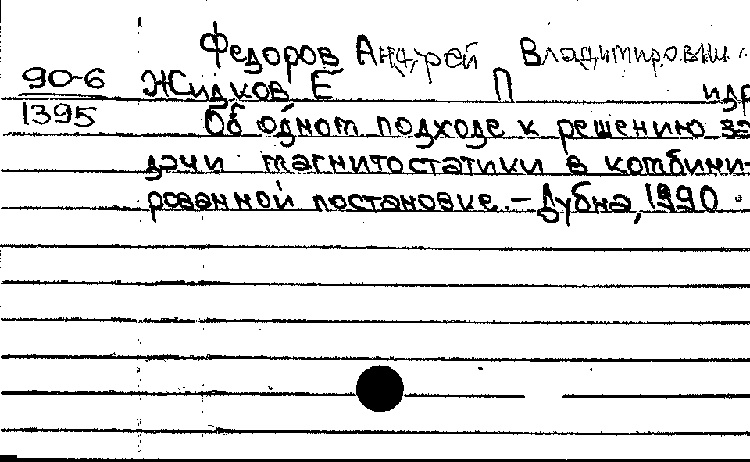 Федоров Андрей Владимирови
90-6 Жидков Е П и др
1395 Об одном подходе к решению за
дачи магнитостатики в комбини-
рованной постановке. – Дубна, 1990.